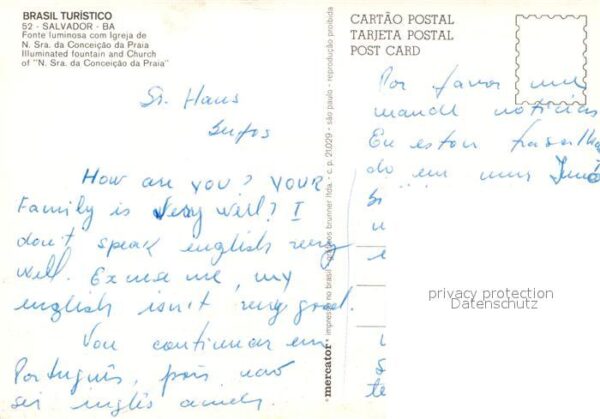 BRASIL TURÍSTICO
52 - SALVADOR - BA
Fonte luminosa com Igreja de
N. Sra. da Conceição da Praia
Illuminated fountain and Church
of "N. Sra. da Conceição da Praia"
CARTÃO POSTAL
TARJETA POSTAL
POST CARD
Sr. Hans
How are you? Your
Family is very well? I
don't speak english very
well. Excuse me, my
english isn't very good.
Vou continuar em
Português, pois não
sei inglês
Por favor me
mande notícias
Eu estou trabalha
do em
mercator · impresso no brasil brunner ltda. - c. p. 21029 - são paulo - reprodução proibida
privacy protection
Datenschutz